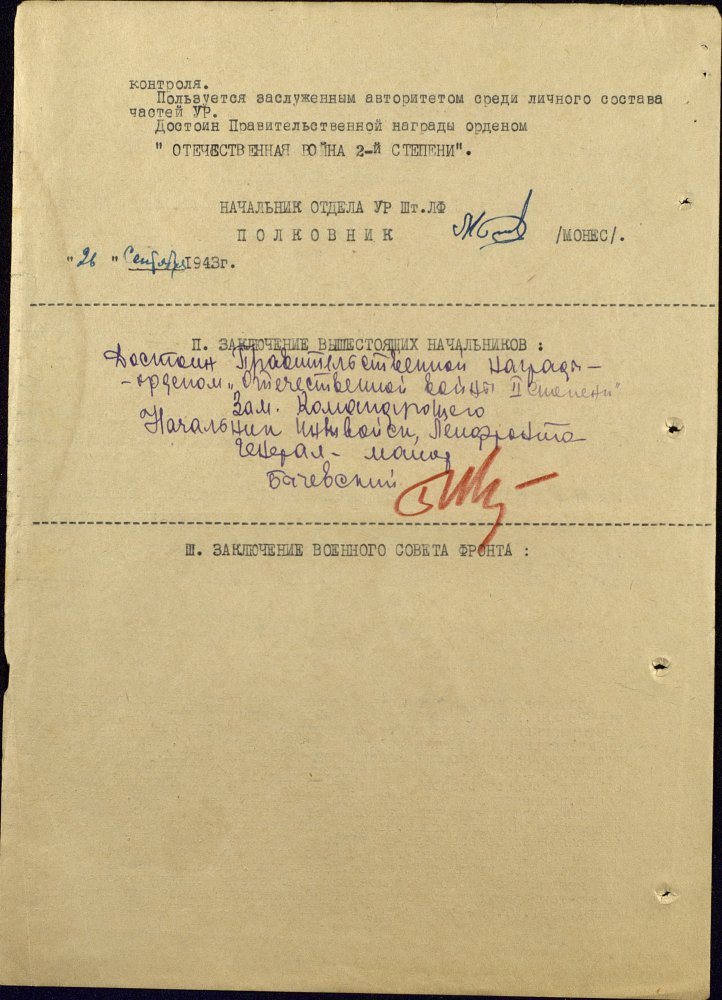 контроля.
Пользуется заслуженным авторитетом среди личного состава
частей УР.
Достоин Правительственной награды орденом
" ОТЕЧЕСТВЕННАЯ ВОЙНА 2-й СТЕПЕНИ".
НАЧАЛЬНИК ОТДЕЛА УР Шт.ЛФ
ПОЛКОВНИК /МОНЕС/.
"26" Сентября 1943г.
П. ЗАКЛЮЧЕНИЕ ВЫШЕСТОЯЩИХ НАЧАЛЬНИКОВ :
Достоин Правительственной награды-
-орденом "Отечественной войны II степени"
Зам. Командующего
Начальник инж.войск, Ленфронта
Генерал-майор
Бычевский
Ш. ЗАКЛЮЧЕНИЕ ВОЕННОГО СОВЕТА ФРОНТА :